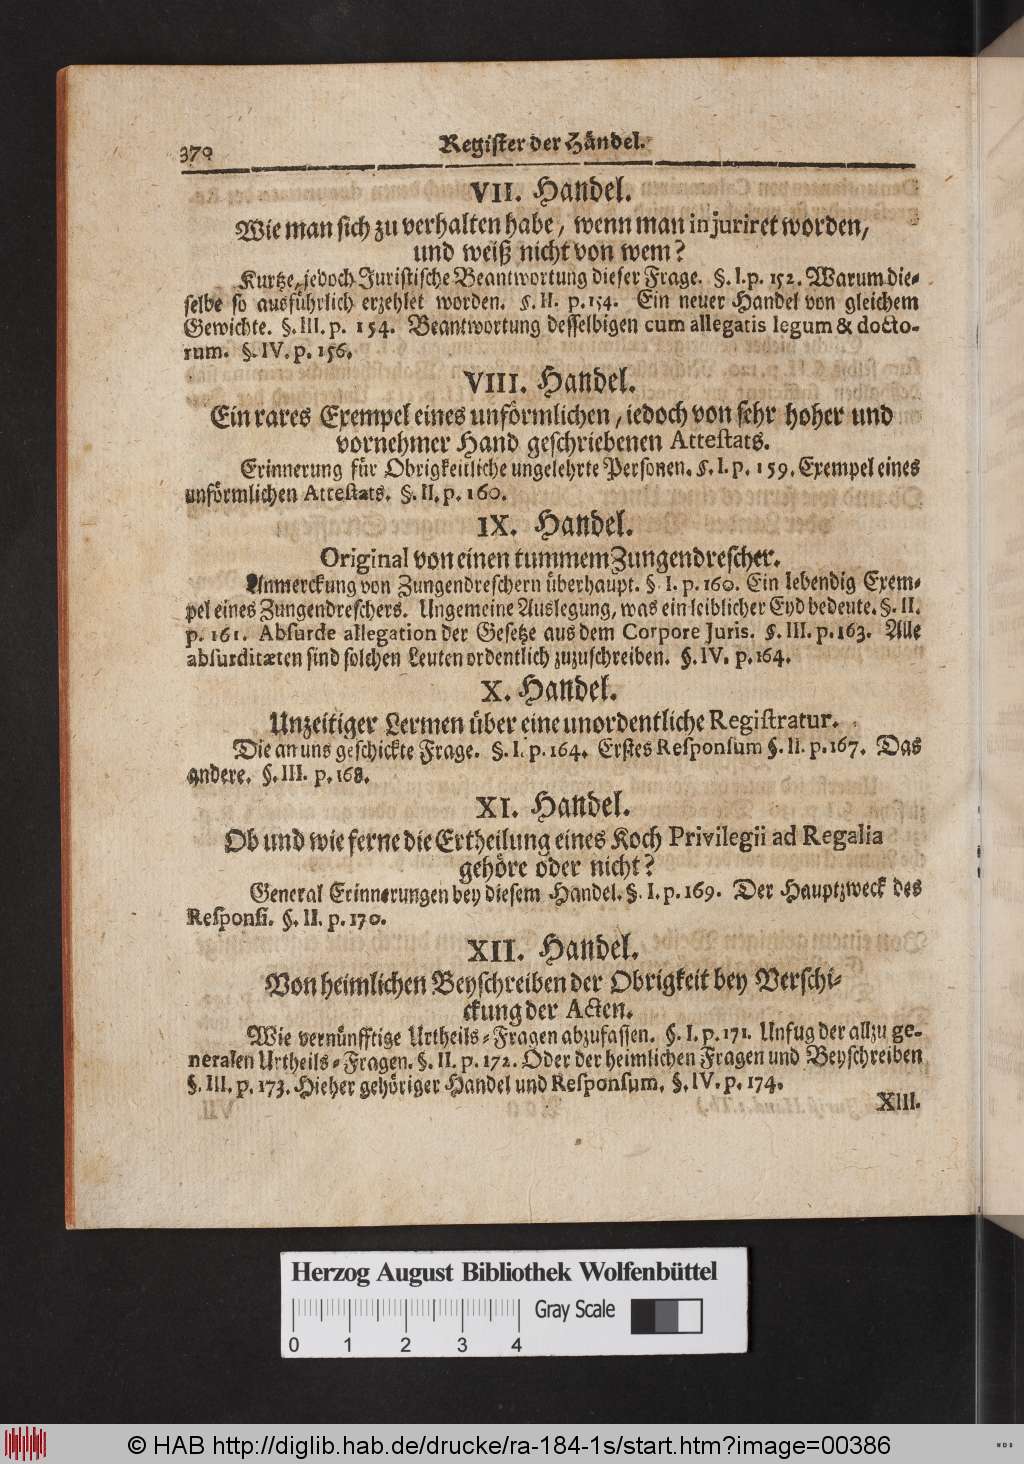 370
Register der Händel.
VII. Handel.
Wie man sich zu verhalten habe, wenn man injuriret worden,
und weiß nicht von wem?
Kurtze, jedoch Juristische Beantwortung dieser Frage. §. I. p. 152. Warum die-
selbe so ausführlich erzehlet worden. §. II. p. 154. Ein neuer Handel von gleichem
Gewichte. §. III. p. 154. Beantwortung desselbigen cum allegatis legum & docto-
rum. §. IV. p. 156.
VIII. Handel.
Ein rares Exempel eines unförmlichen, iedoch von sehr hoher und
vornehmer Hand geschriebenen Attestats.
Erinnerung für Obrigkeitliche ungelehrte Personen. §. I. p. 159. Exempel eines
unförmlichen Attestats. §. II. p. 160.
IX. Handel.
Original von einen tummem Zungendrescher.
Anmerckung von Zungendreschern überhaupt. § I. p. 160. Ein lebendig Exem-
pel eines Zungendreschers. Ungemeine Auslegung, was ein leiblicher Eyd bedeute. §. II.
p. 161. Absurde allegation der Gesetze aus dem Corpore Juris. §. III. p. 163. Alle
absurditæten sind solchen Leuten ordentlich zuzuschreiben. §. IV. p. 164.
X. Handel.
Unzeitiger Lermen über eine unordentliche Registratur.
Die an uns geschickte Frage. §. I. p. 164. Erstes Responsum §. II. p. 167. Das
andere. §. III. p. 168.
XI. Handel.
Ob und wie ferne die Ertheilung eines Koch Privilegii ad Regalia
gehöre oder nicht?
General Erinnerungen bey diesem Handel. §. I. p. 169. Der Hauptzweck des
Responsi. §. II. p. 170.
XII. Handel.
Von heimlichen Beyschreiben der Obrigkeit bey Verschi-
ckung der Acten.
Wie vernünfftige Urtheils-Fragen abzufassen. §. I. p. 171. Unfug der allzu ge-
neralen Urtheils-Fragen. §. II. p. 172. Oder der heimlichen Fragen und Beyschreiben
§. III. p. 173. Hieher gehöriger Handel und Responsum. §. IV. p. 174.
XIII.
Herzog August Bibliothek Wolfenbüttel
Gray Scale
0 1 2 3 4
© HAB http://diglib.hab.de/drucke/ra-184-1s/start.htm?image=00386